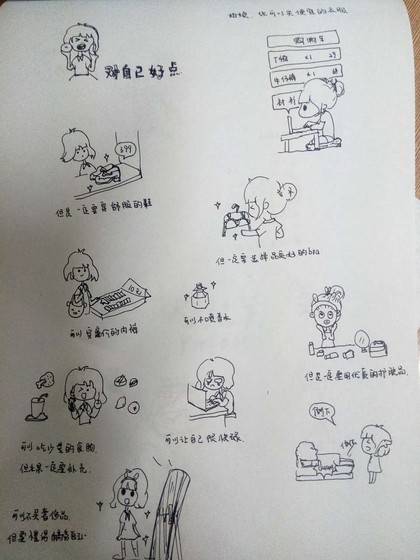 姑娘，你可以买便宜的衣服
购物车
T恤 x1 29
牛仔裤 x1
对自己好点
699
但是一定要穿舒服的鞋
但一定要选择品质好的bra
10元
可以穿廉价的内裤
可以不喷香水
但是一定要用优质的护肤品
可以吃少量的食物
但水果一定要补充
可以让自己很快嫁
倒下
可以不买奢侈品
但要懂得